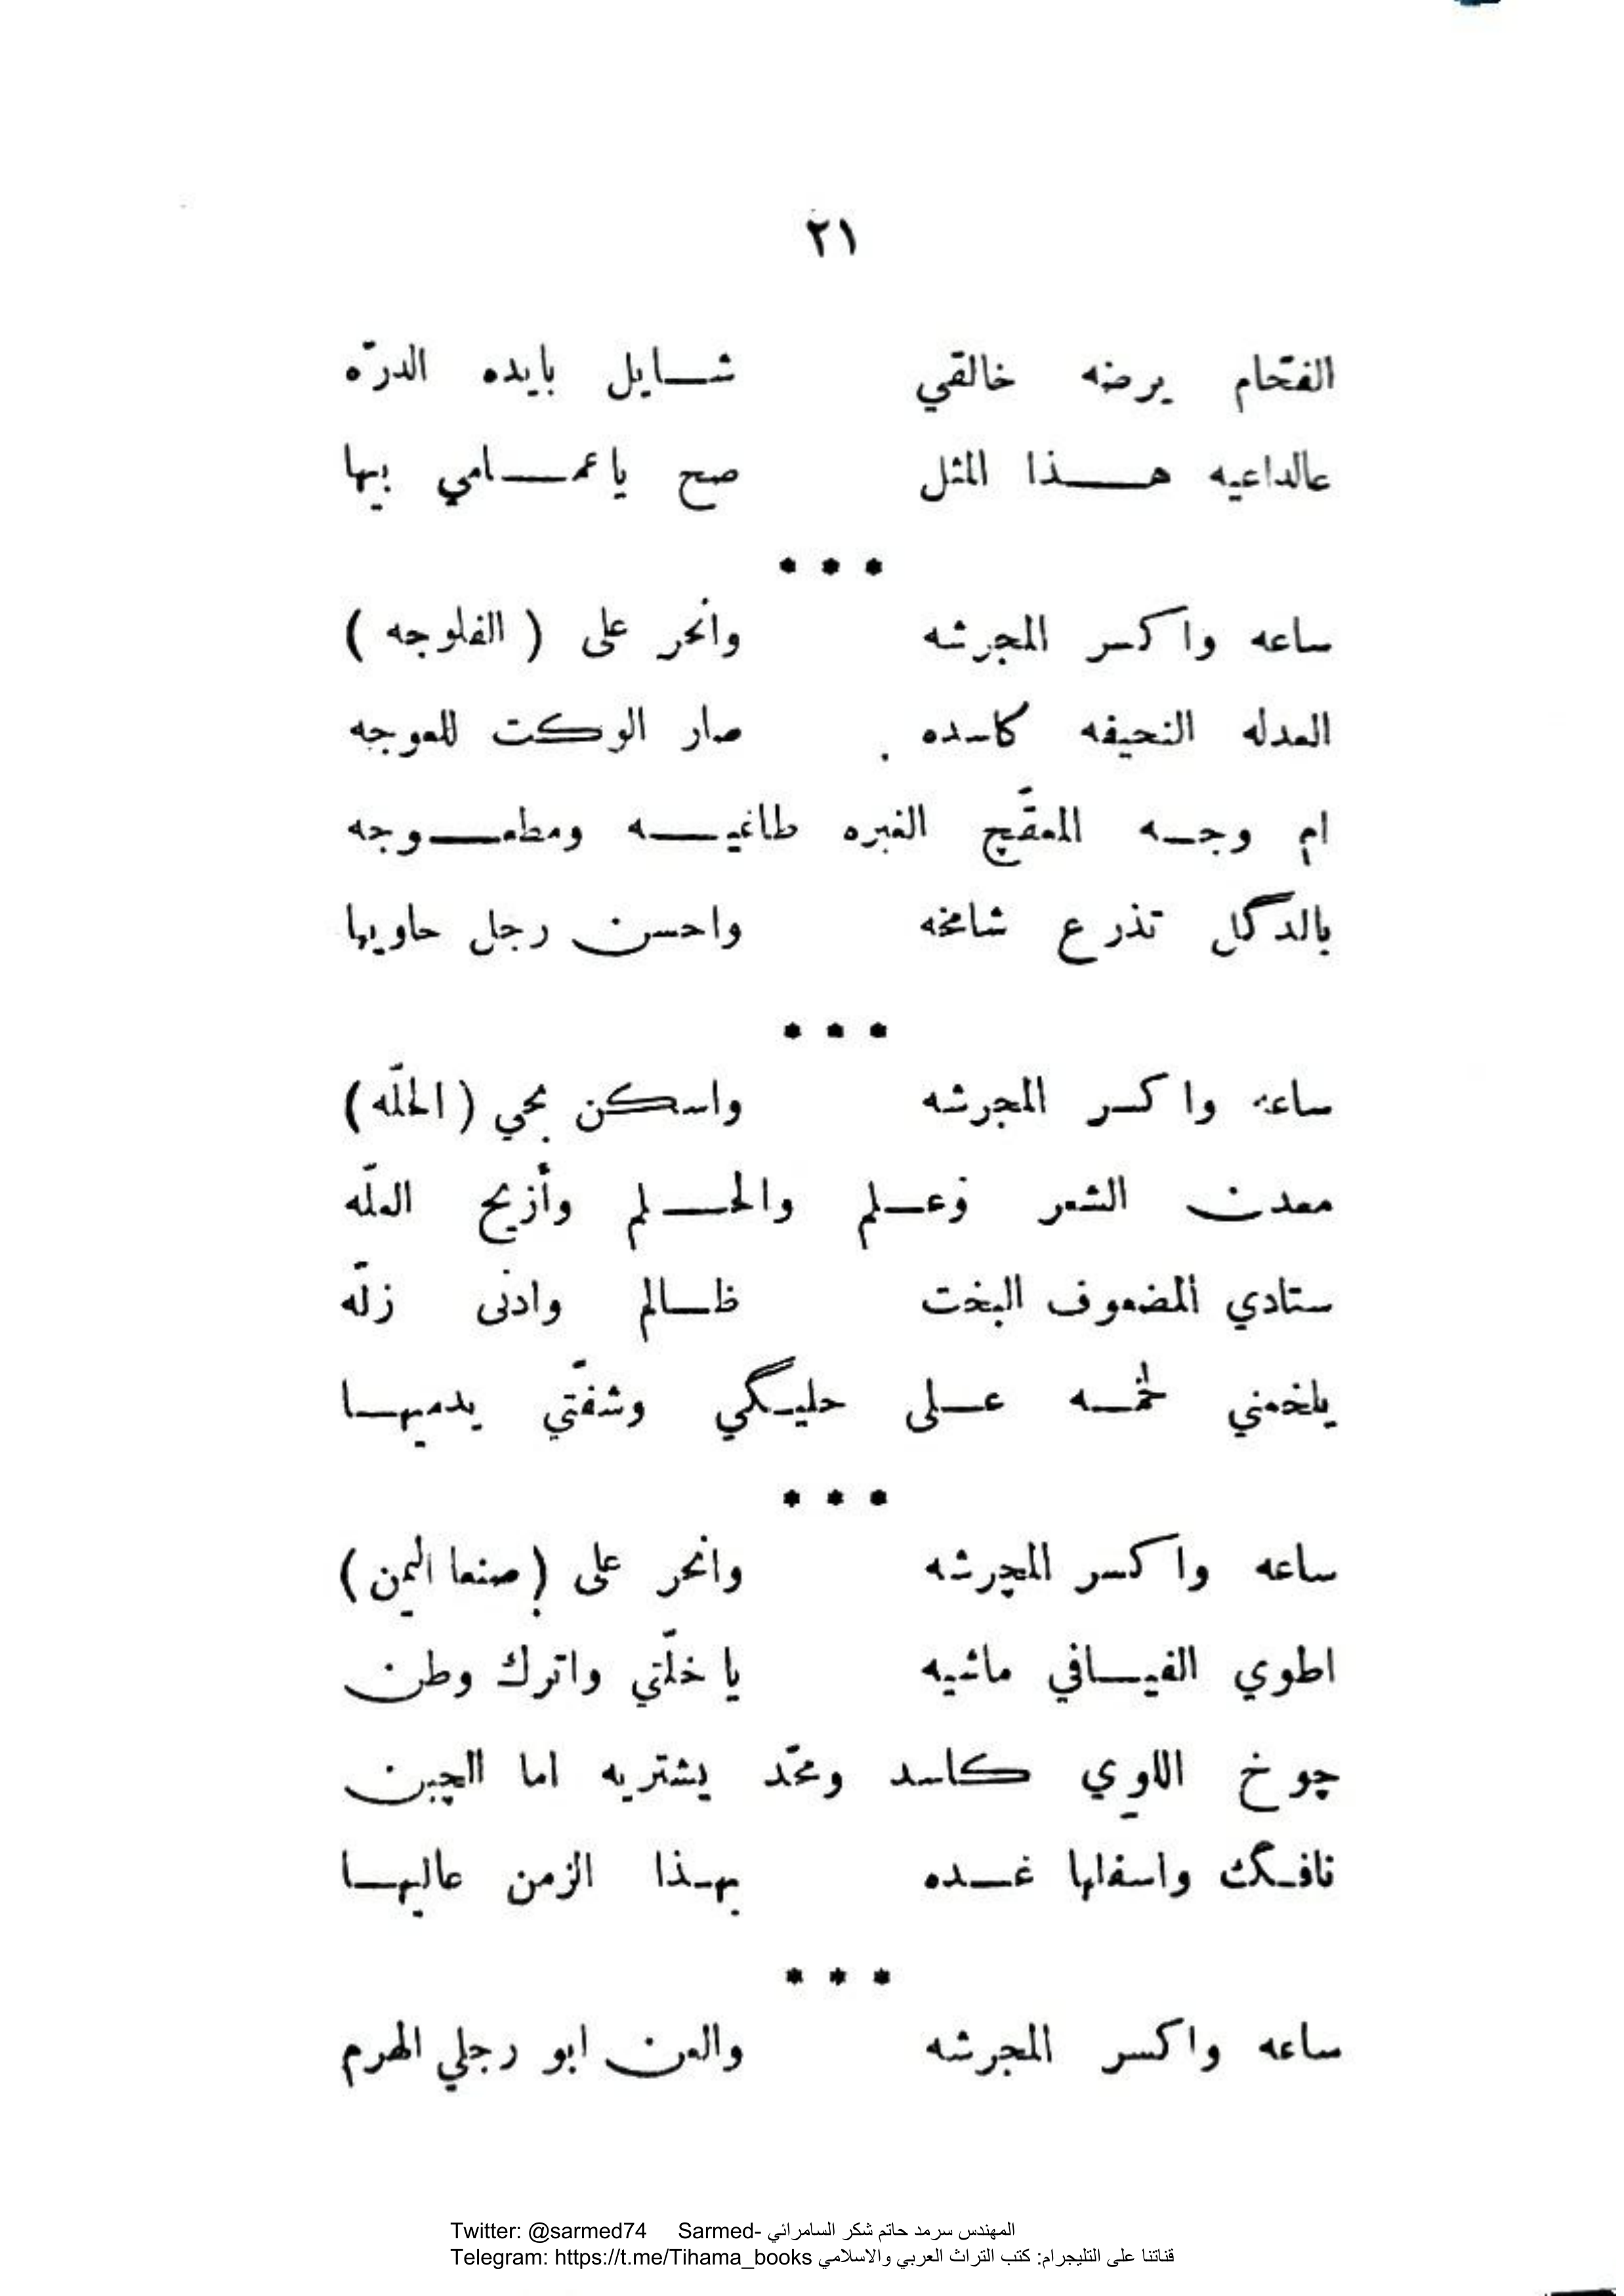 ٢١
الفحّام يرضه خالقي شـــايل بايده الدرّه
عالداعيه هـــذا المثل صح ياعمـــامي بيها
* * *
ساعه واكسر المجرشه وانحر على ( الفلوجه )
العدله النحيفه كاسده صار الوكت للعوجه
ام وجـه المعقّچ الغبره طاغيـــه ومطعـــوجه
بالدگل تذرع شامخه واحسن رجل حاويها
* * *
ساعه واكسر المجرشه واسكن بحي (الحلّه)
معدن الشعر وعـلم والحـــلم وأزيح العلّه
ستادي المضعوف البخت ظـالم وادنى زلّه
يلخمني لخمـه عـلى حليـگي وشفّتي يدميهـا
* * *
ساعه واكسر المچرشه وانحر على (صنعا اليمن)
اطوي الفيـافي ماشيه يا خلّتي واترك وطن
چوخ اللاوي كاسد ومحّد يشتريه اما الچبن
نافـگ واسفلها غـده بهـذا الزمن عاليهـا
* * *
ساعه واكسر المجرشه والعن ابو رجلي الهرم
Twitter: @sarmed74 Sarmed- المهندس سرمد حاتم شكر السامرائي
Telegram: https://t.me/Tihama_books قناتنا على التليجرام: كتب التراث العربي والاسلامي